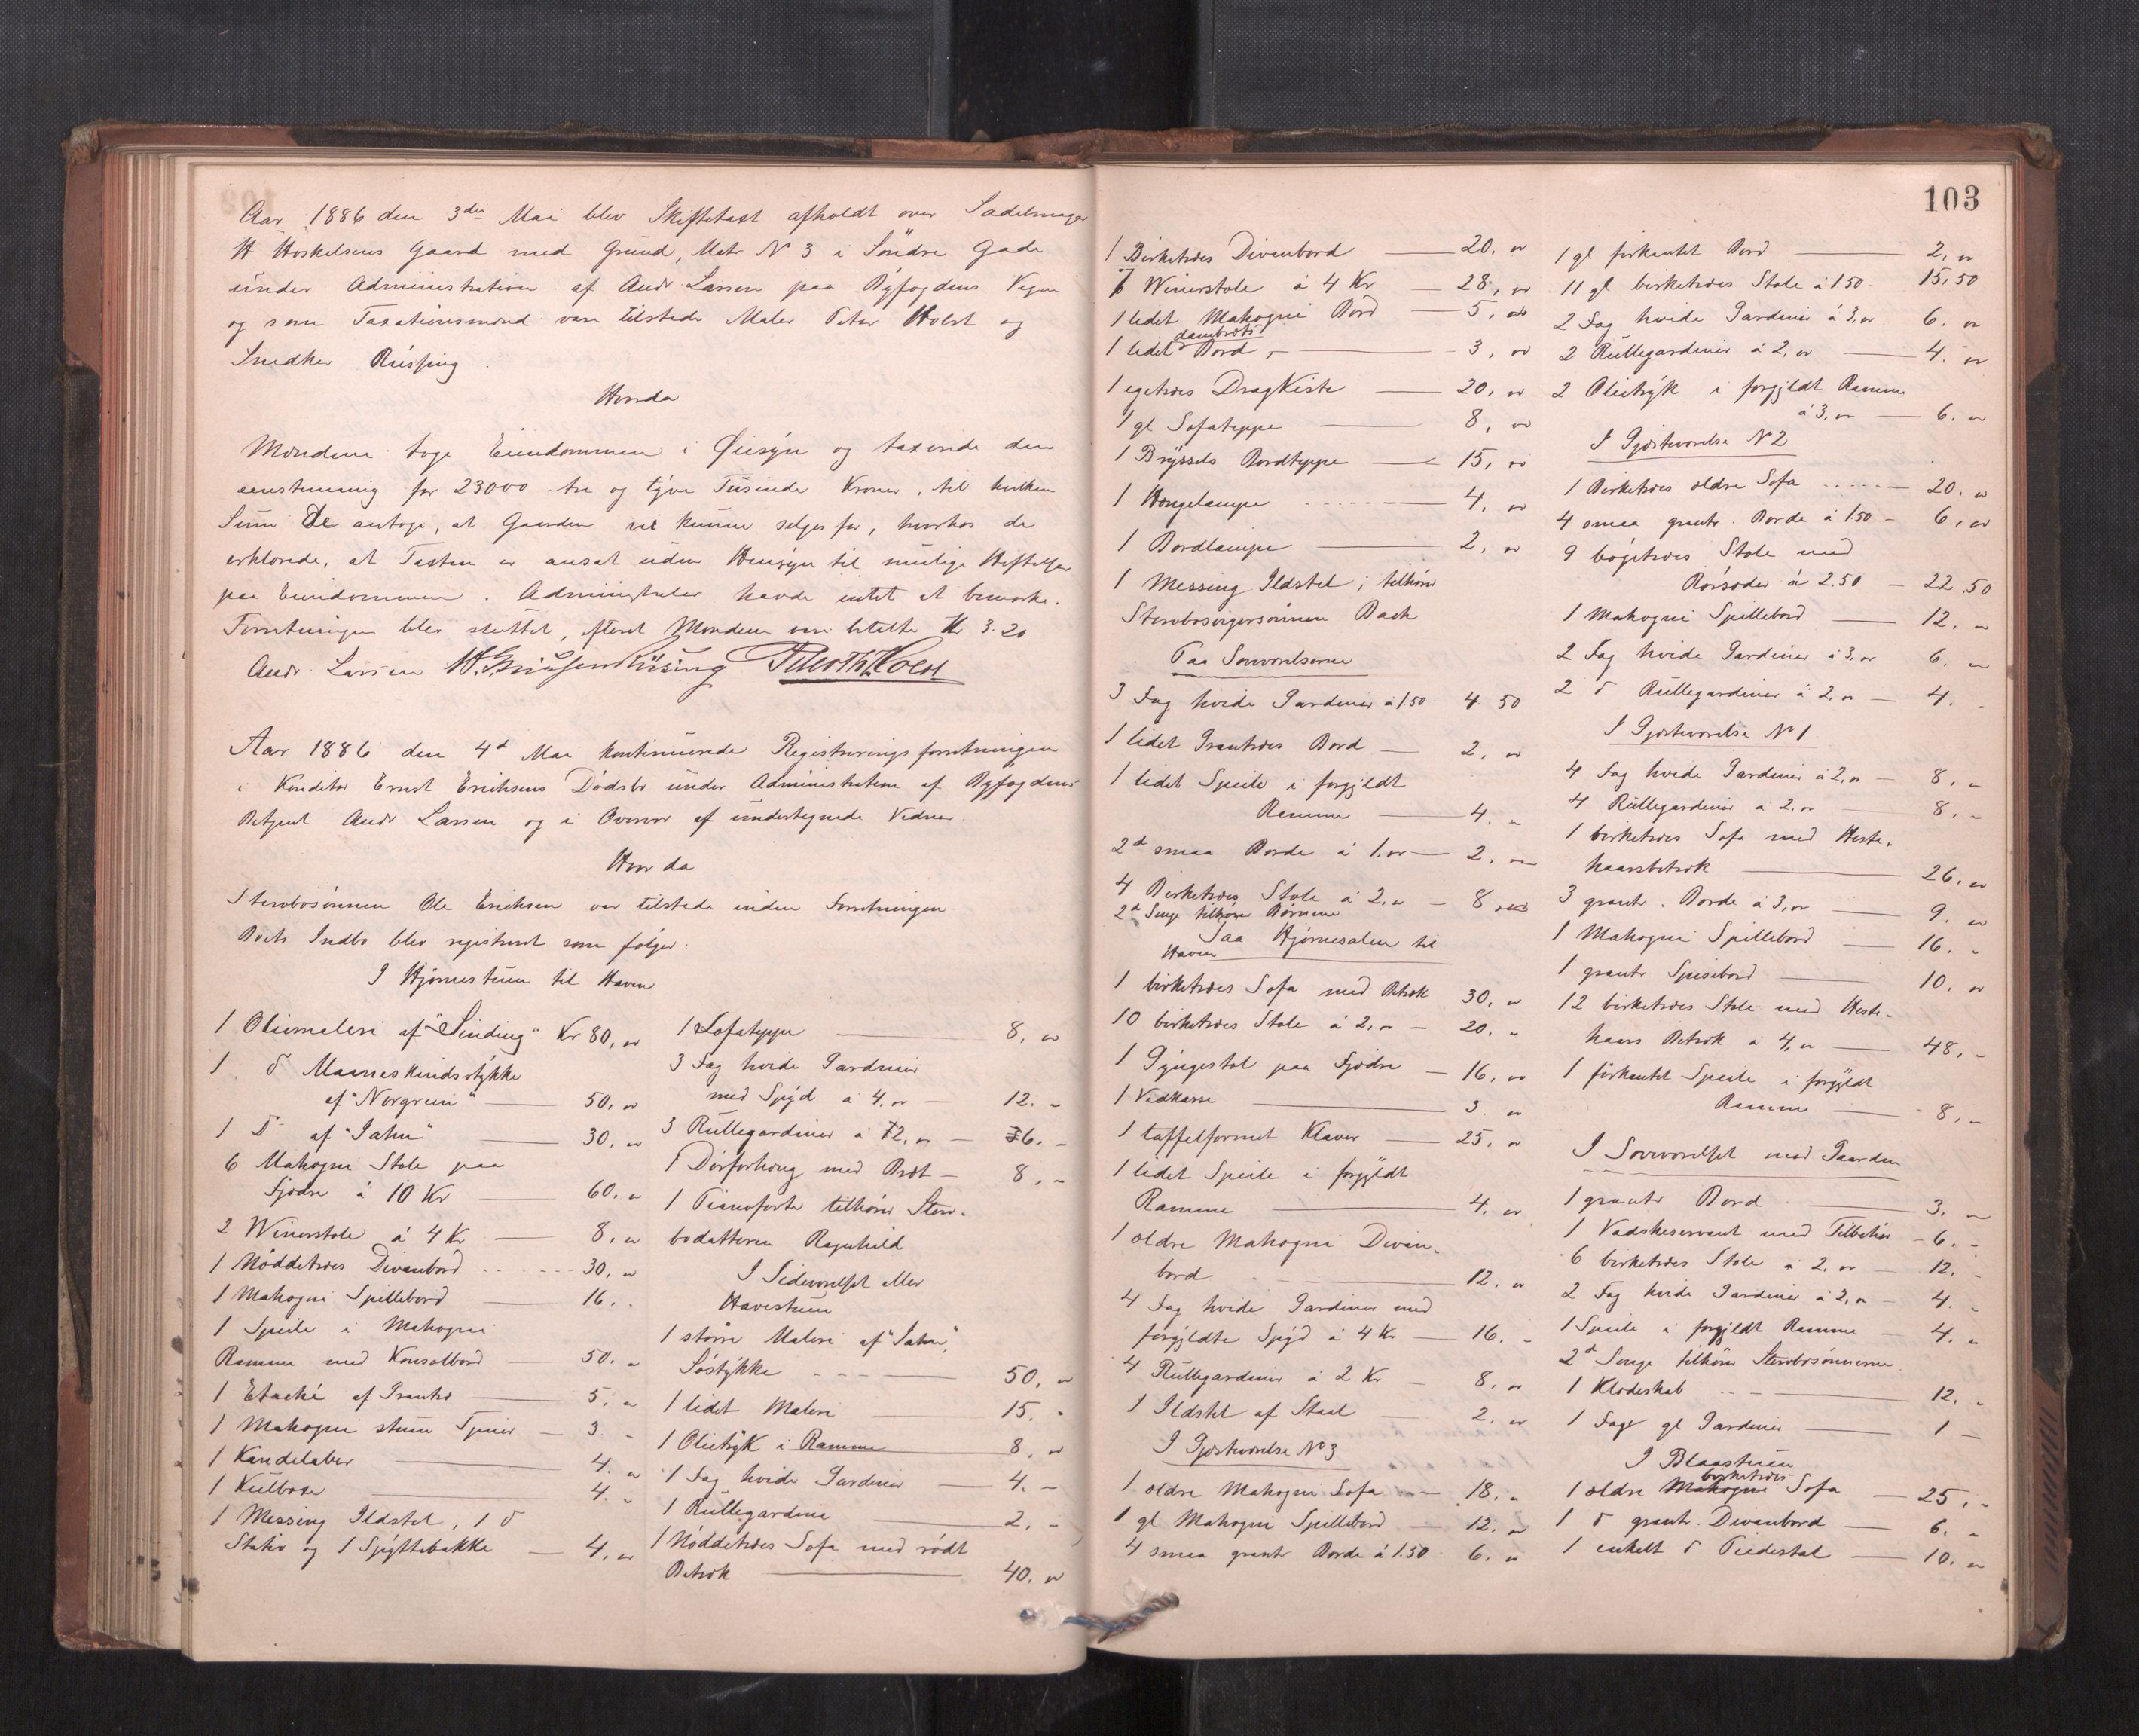 Aar 1886 den 3die Mai blev Skiftetaxt afholdt over Sadelmager
H Hoskelsens Gaard med Grund, Matr N 3 i Söndre Gade
under Administration af Andr Larsen paa Byfogdens Vegne
og som Taxationsmænd vare tilstede Maler Peter Holst og
Snedker Riissing.
Hvorda
Mændene toge Eiendommen i Øiesyn og taxerede den
eenstemmig for 23000 - tre og tyve Tusinde Kroner, til hvilken
Sum de antoge, at Gaarden vil kunne selges for, hvorhos de
erklærede, at Taxten er ansat uden Hensyn til mulige Heftelser
paa Eiendommen. Administrator havde intet at bemærke.
Forretningen blev sluttet, efterat Mændene vare betalte Kr 3.20
Andr. Larsen
Aar 1886 den 4d Mai kontinuerede Registreringsforretningen
i Konditor Ernst Erichsens Dödsbo under Administration af Byfogdens
Betjent Andr Larsen og i Overvær af undertegnede Vidner.
Hvor da
Stervbosönnen Ole Erichsen var tilstede under Forretningen
Boets Indbo blev registreret som fölger:
I Hjörnestuen til Haven
1 Oliemaleri af "Sinding" Kr 80, "
1 do Maaneskindsstykke
af "Norgreen" 50, "
1 do af "Jahn" 30, "
6 Mahogni Stole paa
Fjædre á 10 Kr 60. "
2 Wienerstole á 4 Kr 8, "
1 Nöddetræes Divanbord 30, "
1 Mahogni Spillebord 16. "
1 Speile i Mahogni
Ramme med Konsolbord 50. "
1 Etaché af Grantræ 5. "
1 Mahogni stum Tjener 3. "
1 Kandelaber 4. "
1 Kulboxe 4. "
1 Messing Ildstel, 1 do
Stativ og 1 Spyttebakke 4, "
1 Sofateppe 8, "
3 Fag hvide Gardiner
med Spyd á 4. " 12. "
3 Rullegardiner á 2, " 6. "
1 Dörforhæng med Bræt 8, "
1 Pianoforte tilhörer Sterv-
bodatteren Ragnhild
I Sideværelset eller
Havestuen
1 större Maleri af "Jahn",
Söstykke 50, "
1 lidet Maleri 15. "
1 Olietryk i Ramme 8. "
1 Fag hvide Gardiner 4. "
1 Rullegardine 2. "
1 Nöddetræes Sofa med rödt
Betræk 40. "
103
1 Birketræes Divanbord 20. "
7 Wienerstole á 4 Kr 28, "
1 lidet Mahogni Bord 5, "
dambræts
1 lidet Bord, 3, "
1 egetræes Dragkiste 20, "
1 gl Sofateppe 8, "
1 Bryssels Bordteppe 15, "
1 Hængelampe 4, "
1 Bordlampe 2, "
1 Messing Ildstel; tilhörer
Paa Soveværelserne
3 Fag hvide Gardiner á 1.50 4. 50
1 lidet Grantræes Bord 2, "
1 lidet Speile i forgyldt
Ramme 4. "
2d smaa Borde á 1. " 2. "
4 Birketræes Stole á 2. " 8 "
2d Senge tilhörer Börnene
Paa Hjörnesalen til
Haven
1 birketræes Sofa med Betræk 30, "
10 birketræes Stole á 2. " 20. "
1 Gyngestol paa Fjædre 16, "
1 Vedkasse 3. "
1 taffelformet Klaver 25, "
1 lidet Speile i forgyldt
Ramme 4. "
1 ældre Mahogni Divan-
bord 12. "
4 Fag hvide Gardiner med
forgyldte Spyd á 4 Kr 16. "
4 Rullegardiner á 2 Kr 8, "
1 Ildstel af Staal 2. "
I Gjæsteværelse No 3
1 ældre Mahogni Sofa 18. "
1 gl Mahogni Spillebord 12. "
4 smaa grantr Borde á 1.50 6. "
1 gl firkantet Bord 2, "
11 gl birketræes Stole á 1.50 15,50
2 Fag hvide Gardiner á 3, " 6. "
2 Rullegardiner á 2, " 4. "
2 Olietryk i forgyldt Ramme
á 3, " 6. "
I Gjæsteværelse No 2
1 Birketræes ældre Sofa 20. "
4 smaa grantr. Borde á 1.50 6, "
9 bögetræes Stole med
Rörsæder á 2.50 22.50
1 Mahogni Spillebord 12. "
2 Fag hvide Gardiner á 3, " 6. "
2 do Rullegardiner á 2, " 4. "
I Gjæsteværelse No 1
4 Fag hvide Gardiner á 2, " 8, "
4 Rullegardiner a 2. " 8. "
1 birketræes Sofa med Heste-
haarsbetræk 26, "
3 grantr. Borde á 3, " 9. "
1 Mahogni Spillebord 16. "
1 grantr Spisebord 10. "
12 birketræes Stole med Heste-
haars Betræk á 4, " 48, "
1 firkantet Speile i forgyldt
Ramme 8, "
I Soveværelset mod Gaarden
1 grantr Bord 3, "
1 Vadskeservant med Tilbehör 6. "
6 birketræes Stole á 2. " 12, "
2 Fag hvide Gardiner á 2, " 4. "
1 Speile i forgyldt Ramme 4. "
2d Senge tilhörer Stervbosönnerne.
1 Klædeskab 12. "
1 Fag gl Gardiner 1 "
I Blaastuen
birketræes
1 ældre Mahogni Sofa 25, "
1 do grantr. Divanbord 6. "
1 enkelt do Piedestal 10. "